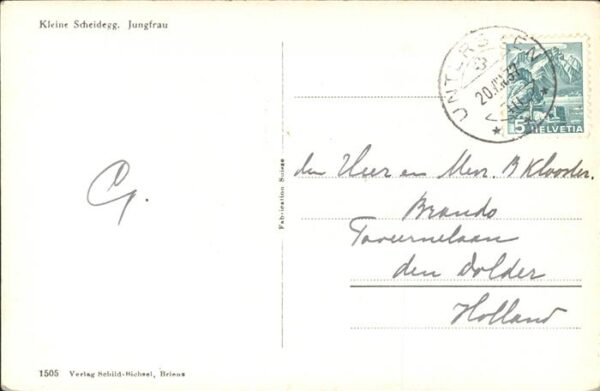 Kleine Scheidegg. Jungfrau
UNTERSEEN
20.VII.37
5 HELVETIA
Fabrication Suisse
den Heer en Mevr. B Klooster.
Brands
Tavernelaan
den Dolder
Holland
G.
1505 Verlag Schild-Bichsel, Brienz